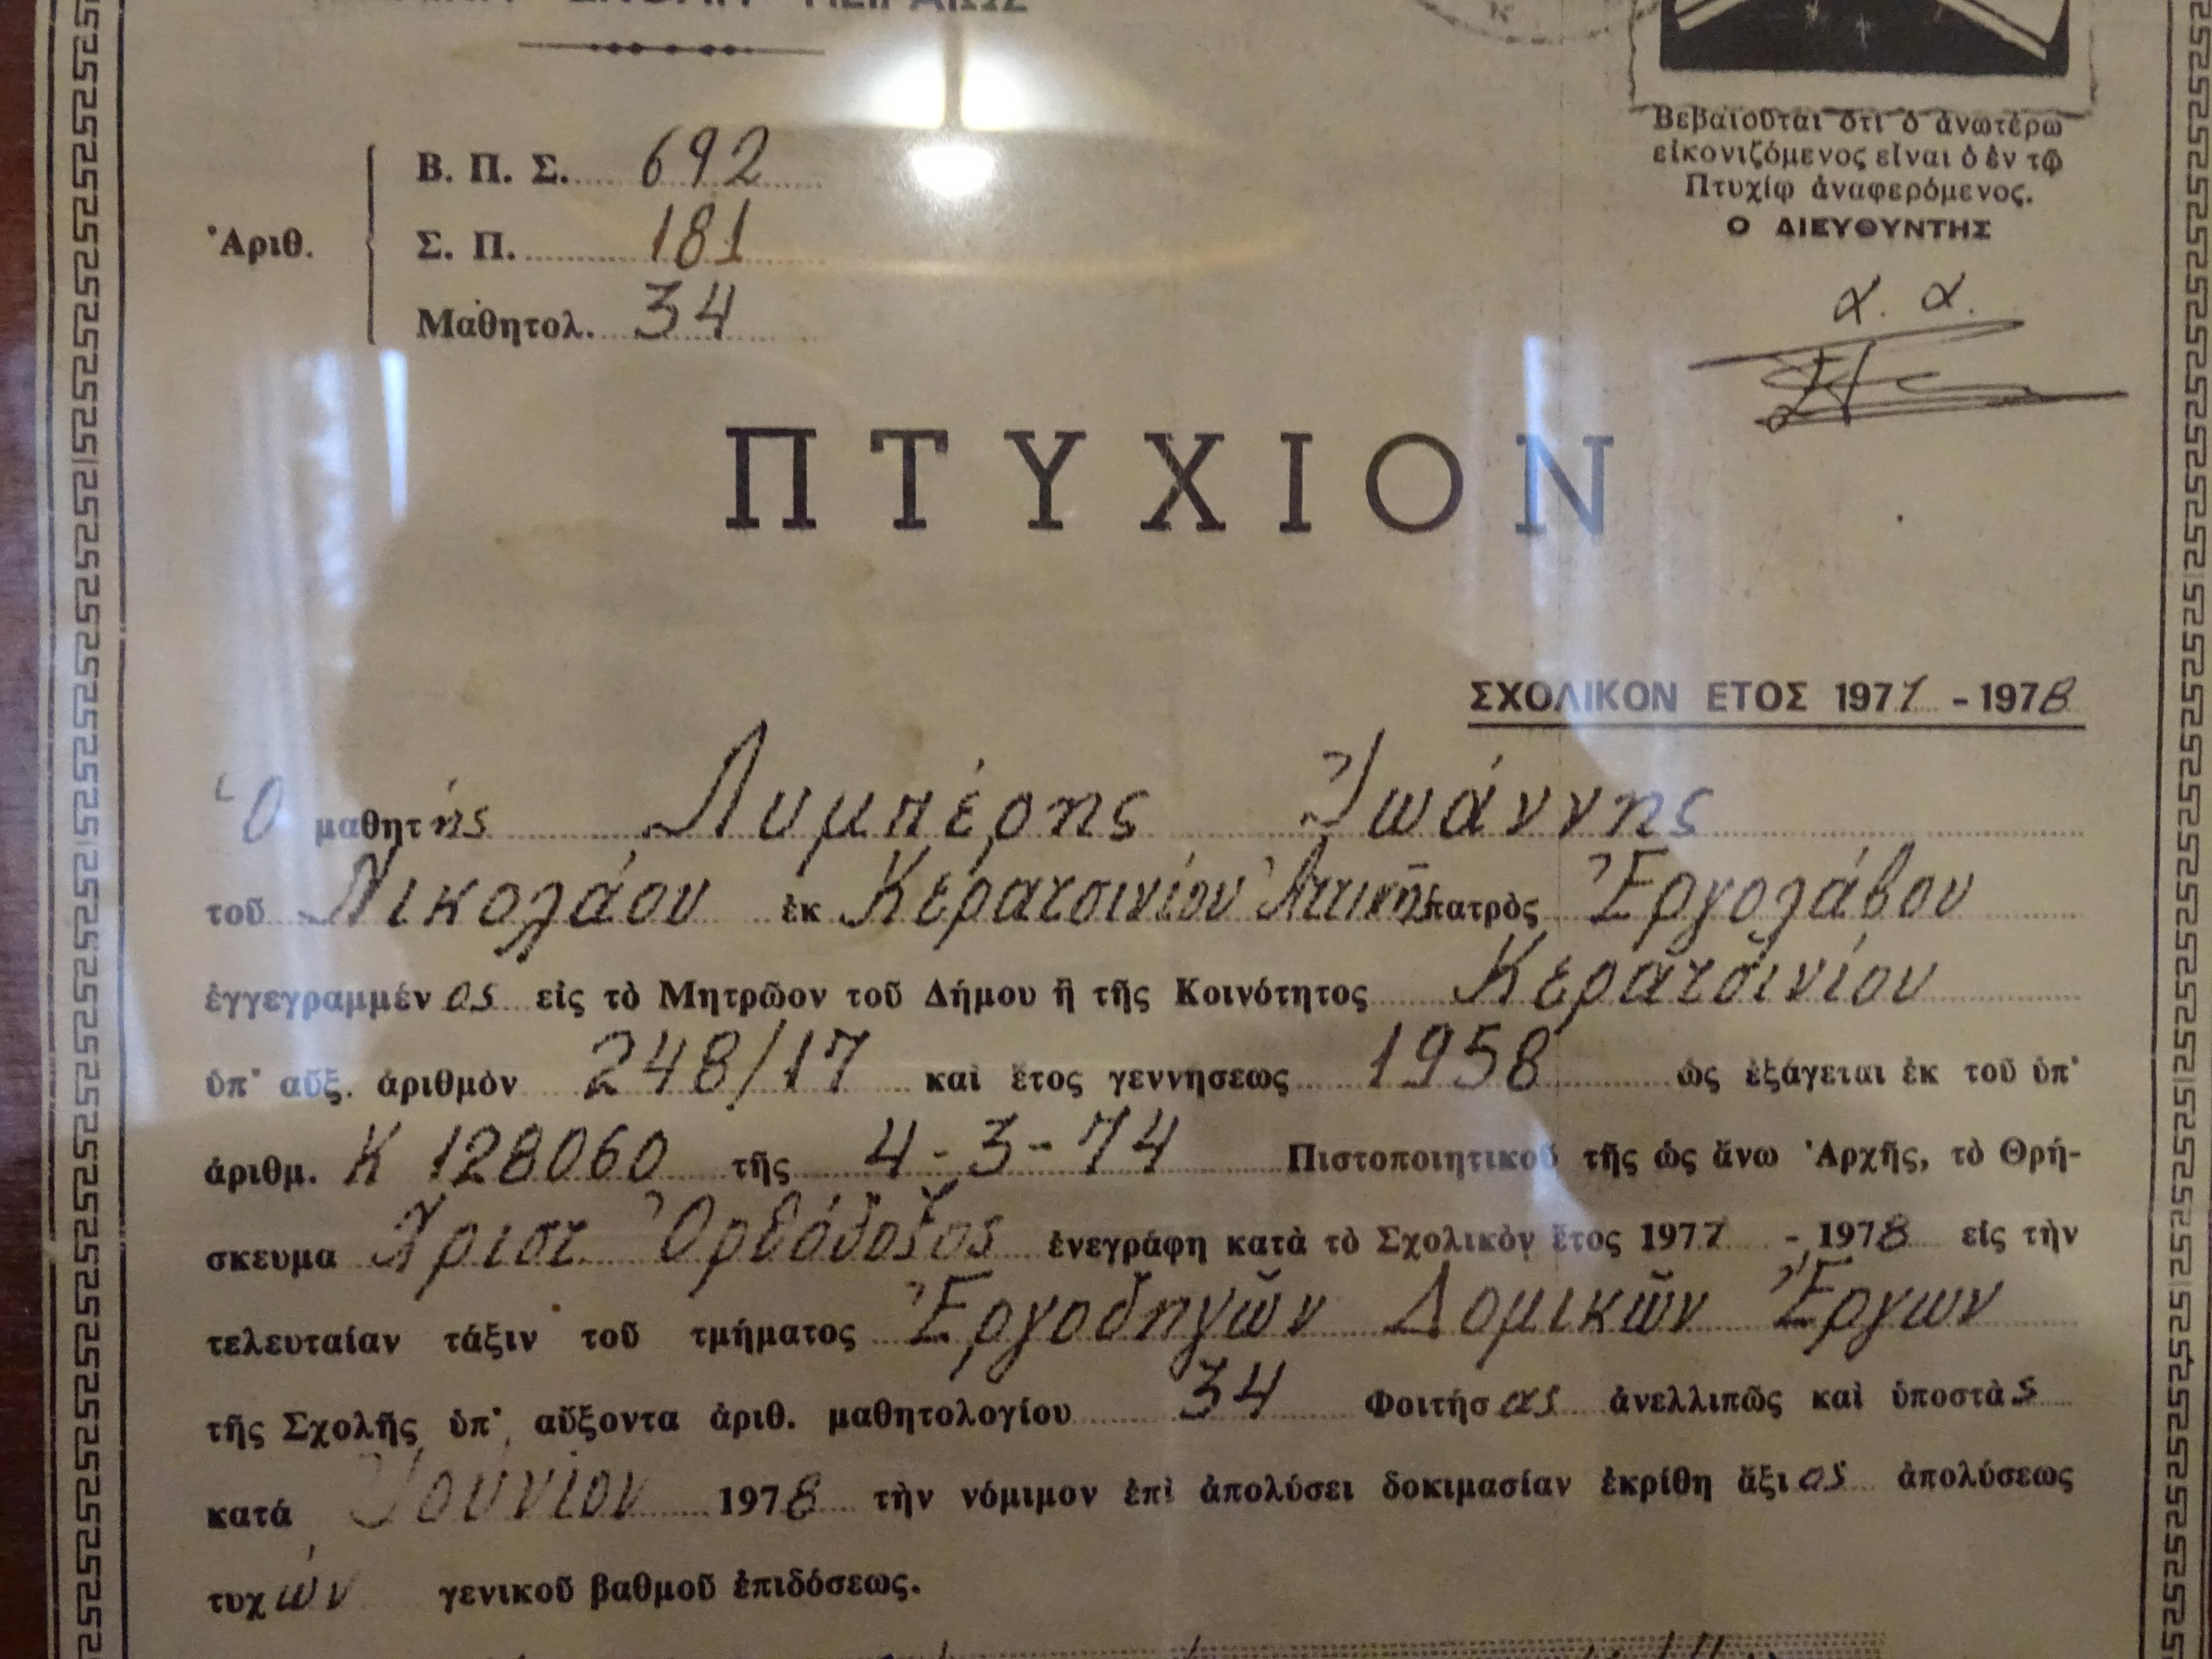 ΣΧΟΛΗ ΠΕΙΡΑΙΩΣ
Βεβαιοῦται ὅτι ὁ ἀνωτέρω
εἰκονιζόμενος εἶναι ὁ ἐν τῷ
Πτυχίῳ ἀναφερόμενος.
Ο ΔΙΕΥΘΥΝΤΗΣ
α. α.
Ἀριθ.
Β. Π. Σ. 692
Σ. Π. 181
Μαθητολ. 34
ΠΤΥΧΙΟΝ
ΣΧΟΛΙΚΟΝ ΕΤΟΣ 1977 - 1978
Ὁ μαθητής Λυμπέρης Ἰωάννης
τοῦ Νικολάου ἐκ Κερατσινίου Ἀττικῆς πατρὸς Ἐργολάβου
ἐγγεγραμμένος εἰς τὸ Μητρῶον τοῦ Δήμου ἢ τῆς Κοινότητος Κερατσινίου
ὑπ' αὔξ. ἀριθμὸν 248/17 καὶ ἔτος γεννήσεως 1958 ὡς ἐξάγεται ἐκ τοῦ ὑπ'
ἀριθμ. Κ 128060 τῆς 4-3-74 Πιστοποιητικοῦ τῆς ὡς ἄνω Ἀρχῆς, τὸ Θρή-
σκευμα Χριστ. Ὀρθόδοξος ἐνεγράφη κατὰ τὸ Σχολικὸν ἔτος 1977 - 1978 εἰς τὴν
τελευταίαν τάξιν τοῦ τμήματος Ἐργοδηγῶν Δομικῶν Ἔργων
τῆς Σχολῆς ὑπ' αὔξοντα ἀριθ. μαθητολογίου 34 Φοιτήσας ἀνελλιπῶς καὶ ὑποστὰς
κατά Ἰούνιον 1978 τὴν νόμιμον ἐπὶ ἀπολύσει δοκιμασίαν ἐκρίθη ἄξιος ἀπολύσεως
τυχών γενικοῦ βαθμοῦ ἐπιδόσεως.